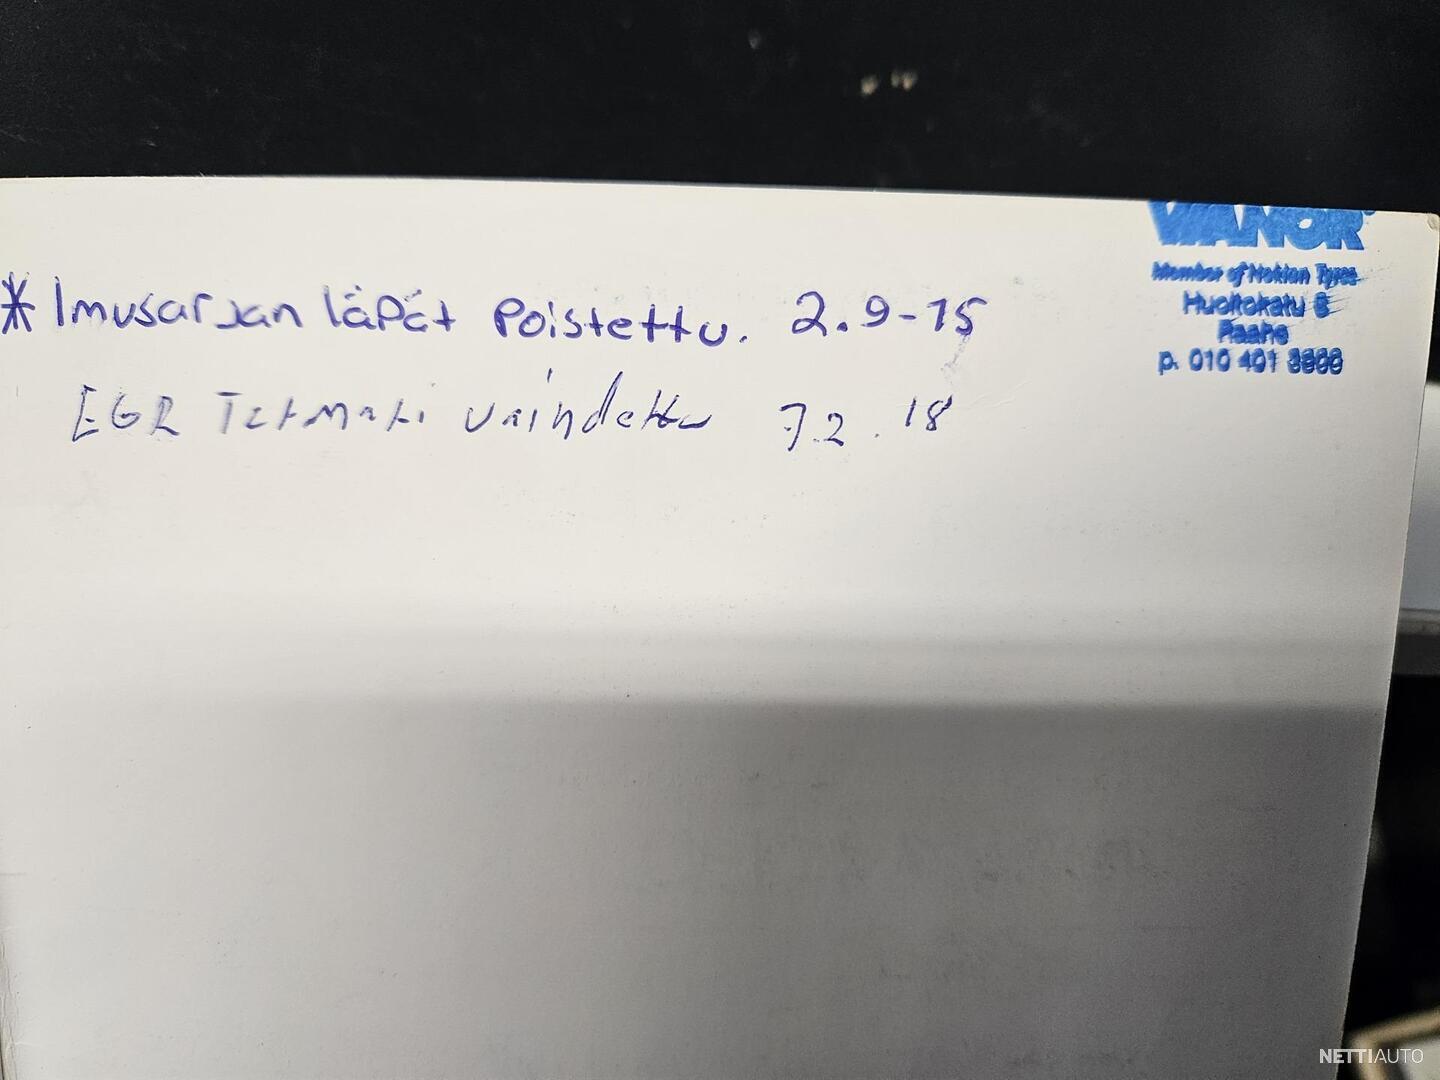 * Imusarjan läpät Poistettu. 2.9-15
EGR Termari vaihdettu 7.2.18
VIANOR
Member of Nokian Tyres
Huoltokatu 8
Raahe
p. 010 401
NETTIAUTO